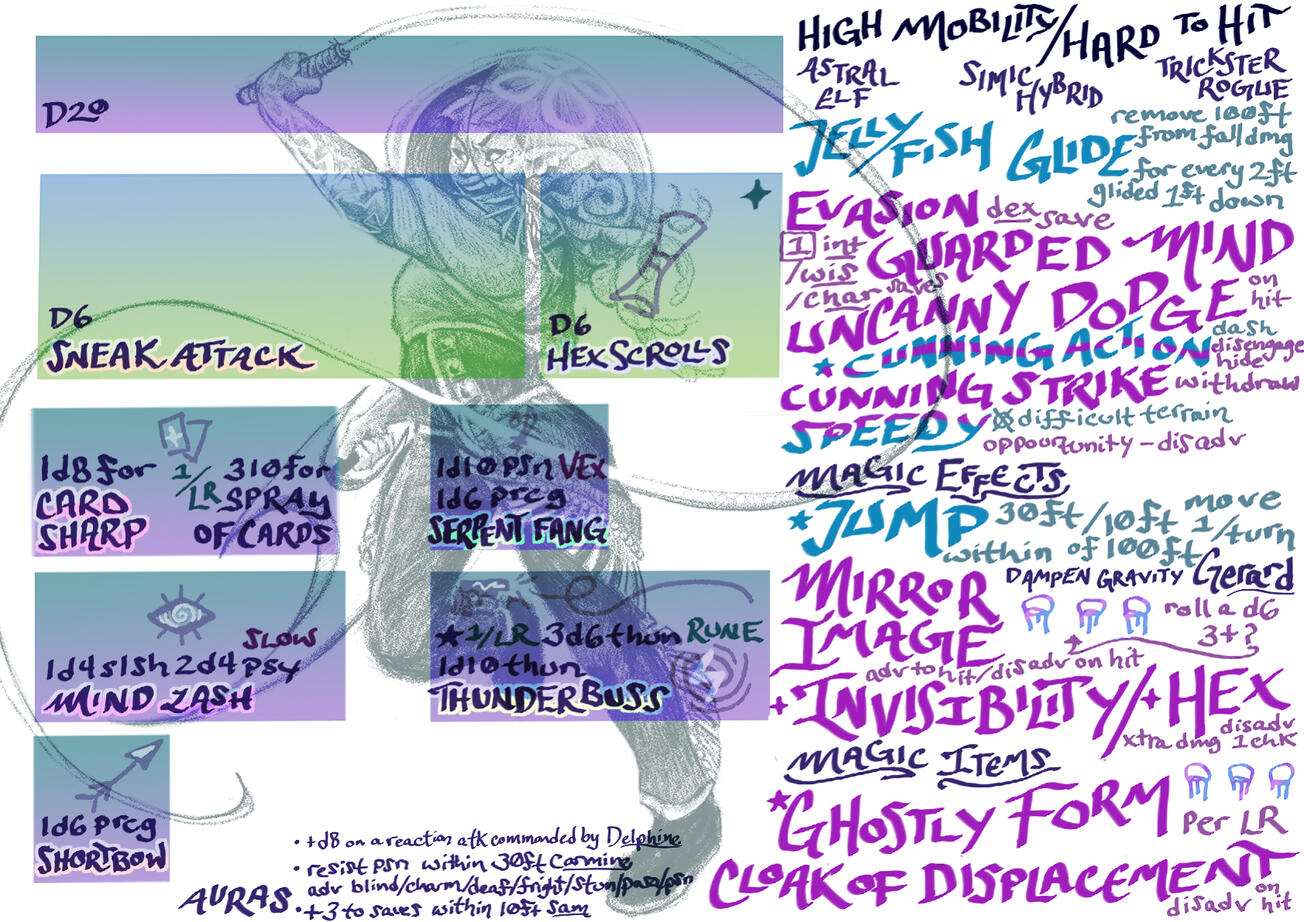 D20
D6
SNEAK ATTACK
D6
HEX SCROLLS
1d8 for
CARD
SHARP
1/LR
310 for
SPRAY
OF CARDS
1d10 psn VEX
1d6 prcg
SERPENT FANG
SLOW
1d4 slsh 2d4 psy
MIND LASH
★ 1/LR 3d6 thun RUNE
1d10 thun
THUNDERBUSS
1d6 prcg
SHORTBOW
AURAS
• +d8 on a reaction atk commanded by Delphine
• resist psn within 30ft Carmine
adv blind/charm/deaf/fright/stun/para/psn
• +3 to saves within 10ft Sam
HIGH MOBILITY/HARD TO HIT
ASTRAL
ELF
SIMIC
HYBRID
TRICKSTER
ROGUE
JELLYFISH GLIDE
remove 100ft
from fall dmg
for every 2ft
glided 1ft down
EVASION dex save
1 int
/wis
/char saves
GUARDED MIND
UNCANNY DODGE on
hit
★ CUNNING ACTION dash
disengage
hide
CUNNING STRIKE withdraw
SPEEDY difficult terrain
oppourtunity - disadv
MAGIC EFFECTS
★ JUMP 30ft/10ft move
1/turn
within of 100ft
DAMPEN GRAVITY Gerard
MIRROR
IMAGE
roll a d6
3+?
adv to hit/disadv on hit
+ INVISIBILITY/+ HEX
disadv
xtra dmg 1 chk
MAGIC ITEMS
★ GHOSTLY FORM
per LR
CLOAK OF DISPLACEMENT
on
disadv hit